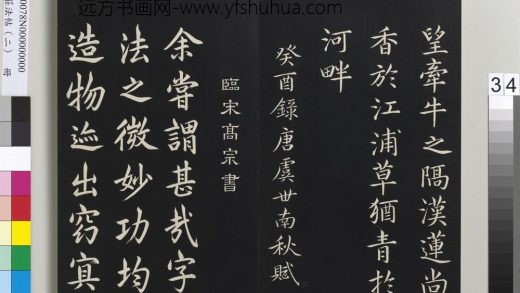 远方书画网-www.yfshuhua.com
望牽牛之隔漢蓮尚
香於江浦草猶青於
河畔
癸酉錄唐虞世南秋賦
臨宋髙宗書
余嘗謂甚哉字
法之微妙功均
造物迹出窈冥
0078N000000000
法帖(二) 冊
34